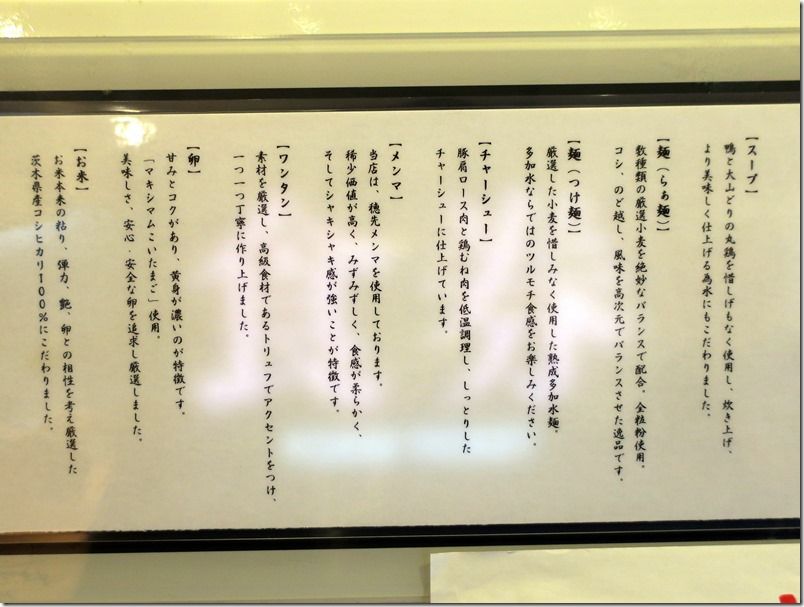 【スープ】
鴨と大山どりの丸鶏を惜しげもなく使用し、炊き上げ、
より美味しく仕上げる為水にもこだわりました。
【麺(らぁ麺)】
数種類の厳選小麦を絶妙なバランスで配合。全粒粉使用。
コシ、のど越し、風味を高次元でバランスさせた逸品です。
【麺(つけ麺)】
厳選した小麦を惜しみなく使用した熟成多加水麺。
多加水ならではのツルモチ食感をお楽しみください。
【チャーシュー】
豚肩ロース肉と鶏むね肉を低温調理し、しっとりした
チャーシューに仕上げています。
【メンマ】
当店は、穂先メンマを使用しております。
稀少価値が高く、みずみずしく、食感が柔らかく、
そしてシャキシャキ感が強いことが特徴です。
【ワンタン】
素材を厳選し、高級食材であるトリュフでアクセントをつけ、
一つ一つ丁寧に作り上げました。
【卵】
甘みとコクがあり、黄身が濃いのが特徴です。
「マキシマムこいたまご」使用。
美味しさ、安心・安全な卵を追求し厳選しました。
【お米】
お米本来の粘り、弾力、艶、卵との相性を考え厳選した
茨木県産コシヒカリ100%にこだわりました。